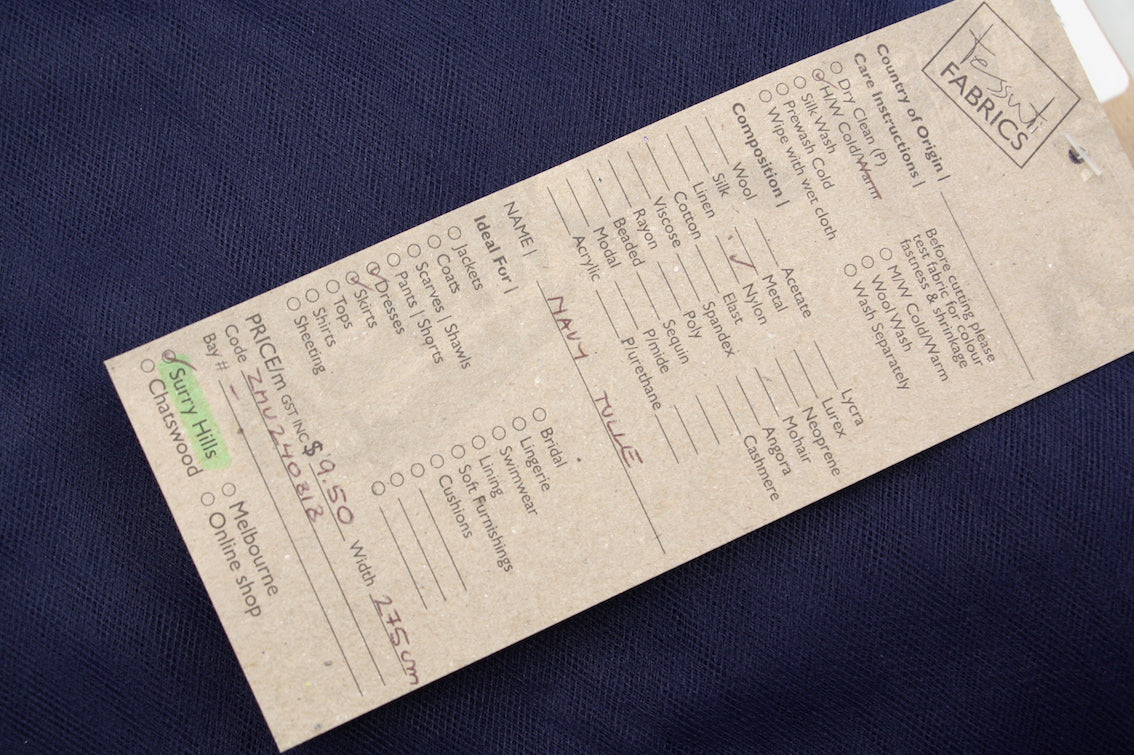 tessuti
FABRICS
Country of Origin |
Care Instructions |
Dry Clean (P)
H/W Cold/Warm
Silk Wash
Prewash Cold
Wipe with wet cloth
Before cutting please
test fabric for colour
fastness & shrinkage
M/W Cold/Warm
Wool Wash
Wash Separately
Composition |
Wool
Silk
Linen
Cotton
Viscose
Rayon
Beaded
Modal
Acrylic
Acetate
Metal
Nylon
Elast
Spandex
Poly
Sequin
P/mide
P/urethane
Lycra
Lurex
Neoprene
Mohair
Angora
Cashmere
NAME | NAVY TULLE
Ideal For |
Jackets
Coats
Scarves | Shawls
Pants | Shorts
Dresses
Skirts
Tops
Shirts
Sheeting
Bridal
Lingerie
Swimwear
Lining
Soft Furnishings
Cushions
PRICE/m GST INC $ 9.50 Width 275cm
Code
Bay # -
Surry Hills
Chatswood
Melbourne
Online shop